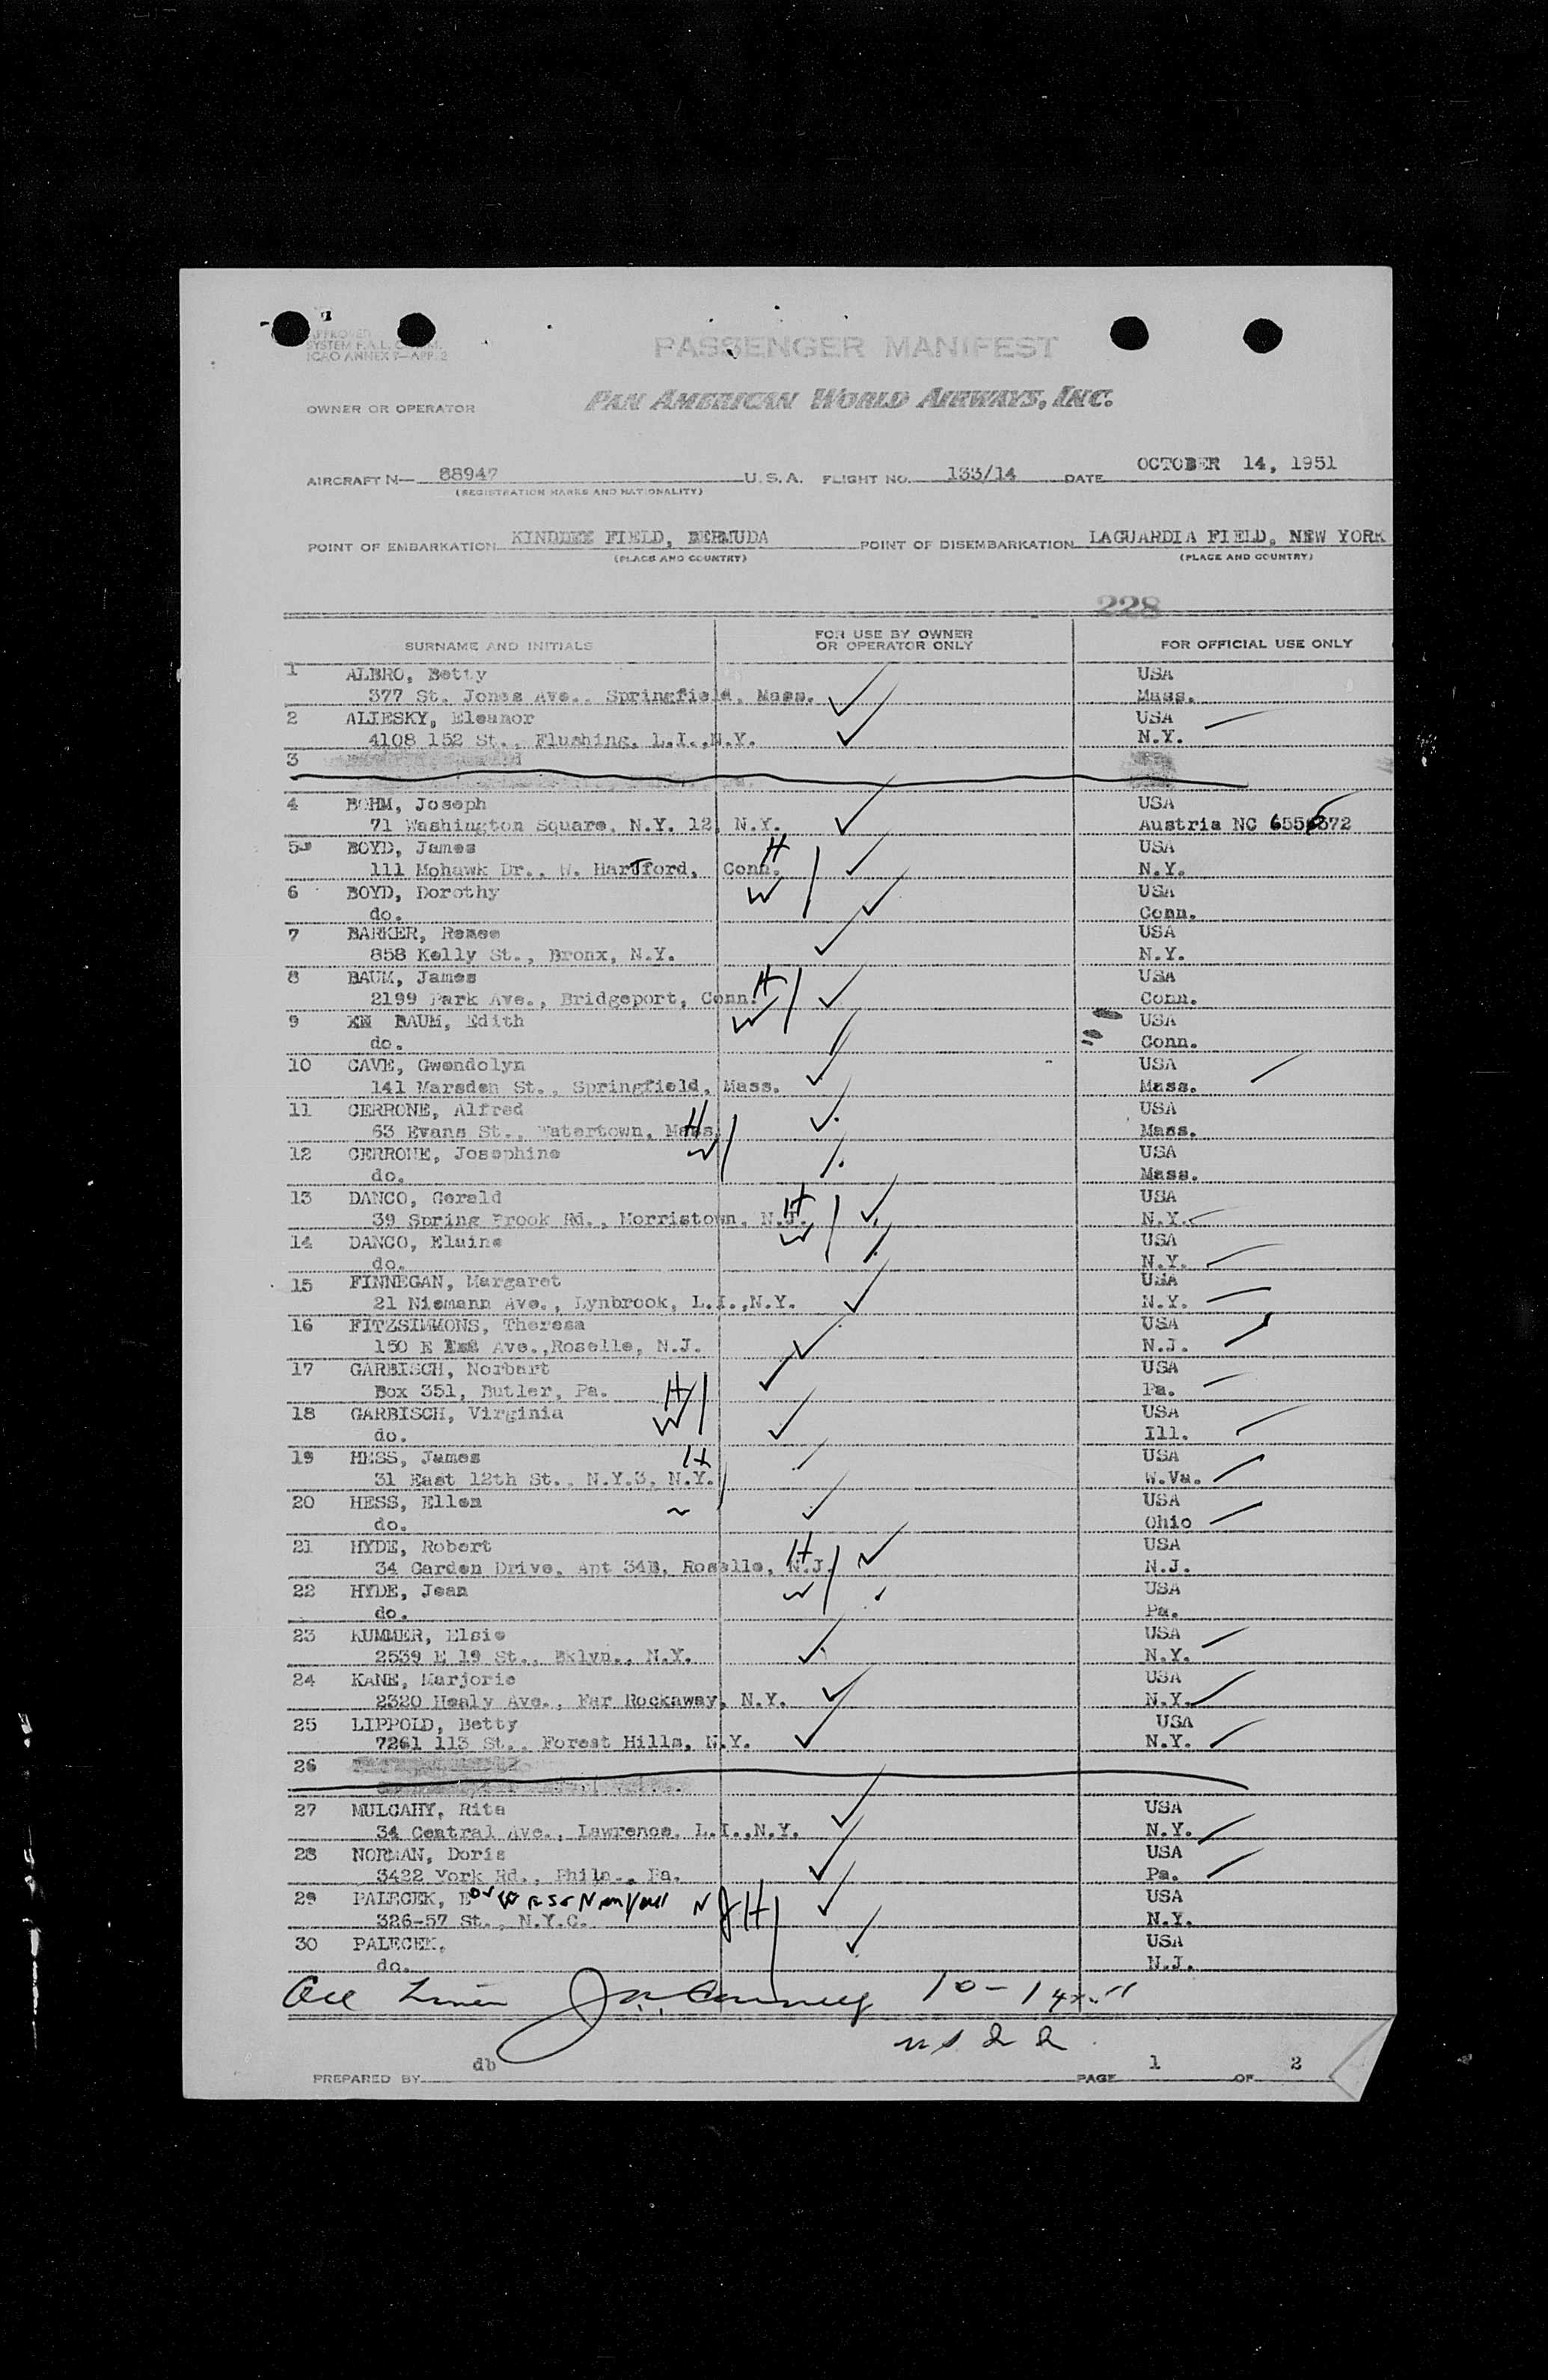 APPROVED
SYSTEM F.A.L. COMM.
ICAO ANNEX 9—APP. 2
PASSENGER MANIFEST
OWNER OR OPERATOR PAN AMERICAN WORLD AIRWAYS, INC.
AIRCRAFT N— 88947 U.S.A. FLIGHT NO. 133/14 DATE OCTOBER 14, 1951
(REGISTRATION MARKS AND NATIONALITY)
POINT OF EMBARKATION KINDLEY FIELD, BERMUDA POINT OF DISEMBARKATION LAGUARDIA FIELD, NEW YORK
(PLACE AND COUNTRY) (PLACE AND COUNTRY)
228
SURNAME AND INITIALS FOR USE BY OWNER OR OPERATOR ONLY FOR OFFICIAL USE ONLY
1 ALBRO, Betty USA
377 St. Jones Ave., Springfield, Mass. Mass.
2 ALIESKY, Eleanor USA
4108 152 St., Flushing, L.I.,N.Y. N.Y.
3
4 BOHM, Joseph USA
71 Washington Square, N.Y. 12, N.Y. Austria NC 6556372
5 BOYD, James H USA
111 Mohawk Dr., W. Hartford, Conn. N.Y.
6 BOYD, Dorothy W USA
do. Conn.
7 BARKER, Renee USA
858 Kelly St., Bronx, N.Y. N.Y.
8 BAUM, James H USA
2199 Park Ave., Bridgeport, Conn. Conn.
9 XN BAUM, Edith W USA
do. Conn.
10 CAVE, Gwendolyn USA
141 Marsden St., Springfield, Mass. Mass.
11 CERRONE, Alfred H USA
63 Evans St., Watertown, Mass. Mass.
12 CERRONE, Josephine W USA
do. Mass.
13 DANCO, Gerald H USA
39 Spring Brook Rd., Morristown, N.J. N.Y.
14 DANCO, Elaine W USA
do. N.Y.
15 FINNEGAN, Margaret USA
21 Niemann Ave., Lynbrook, L.I.,N.Y. N.Y.
16 FITZSIMMONS, Theresa USA
150 E Ave.,Roselle, N.J. N.J.
17 GARBISCH, Norbert H USA
Box 351, Butler, Pa. Pa.
18 GARBISCH, Virginia W USA
do. Ill.
19 HESS, James H USA
31 East 12th St., N.Y.3, N.Y. W.Va.
20 HESS, Ellen USA
do. Ohio
21 HYDE, Robert H USA
34 Garden Drive, Apt 34B, Roselle, N.J. N.J.
22 HYDE, Jean W USA
do. Pa.
23 KUMMER, Elsie USA
2539 E 19 St., Bklyn., N.Y. N.Y.
24 KANE, Marjorie USA
2320 Healy Ave., Far Rockaway, N.Y. N.Y.
25 LIPPOLD, Betty USA
7261 113 St., Forest Hills, N.Y. N.Y.
26
27 MULCAHY, Rita USA
34 Central Ave., Lawrence, L.I.,N.Y. N.Y.
28 NORMAN, Doris USA
3422 York Rd., Phila., Pa. Pa.
29 PALECEK, H USA
326-57 St., N.Y.C. N.Y.
30 PALECEK, USA
do. N.J.
PREPARED BY db PAGE 1 OF 2